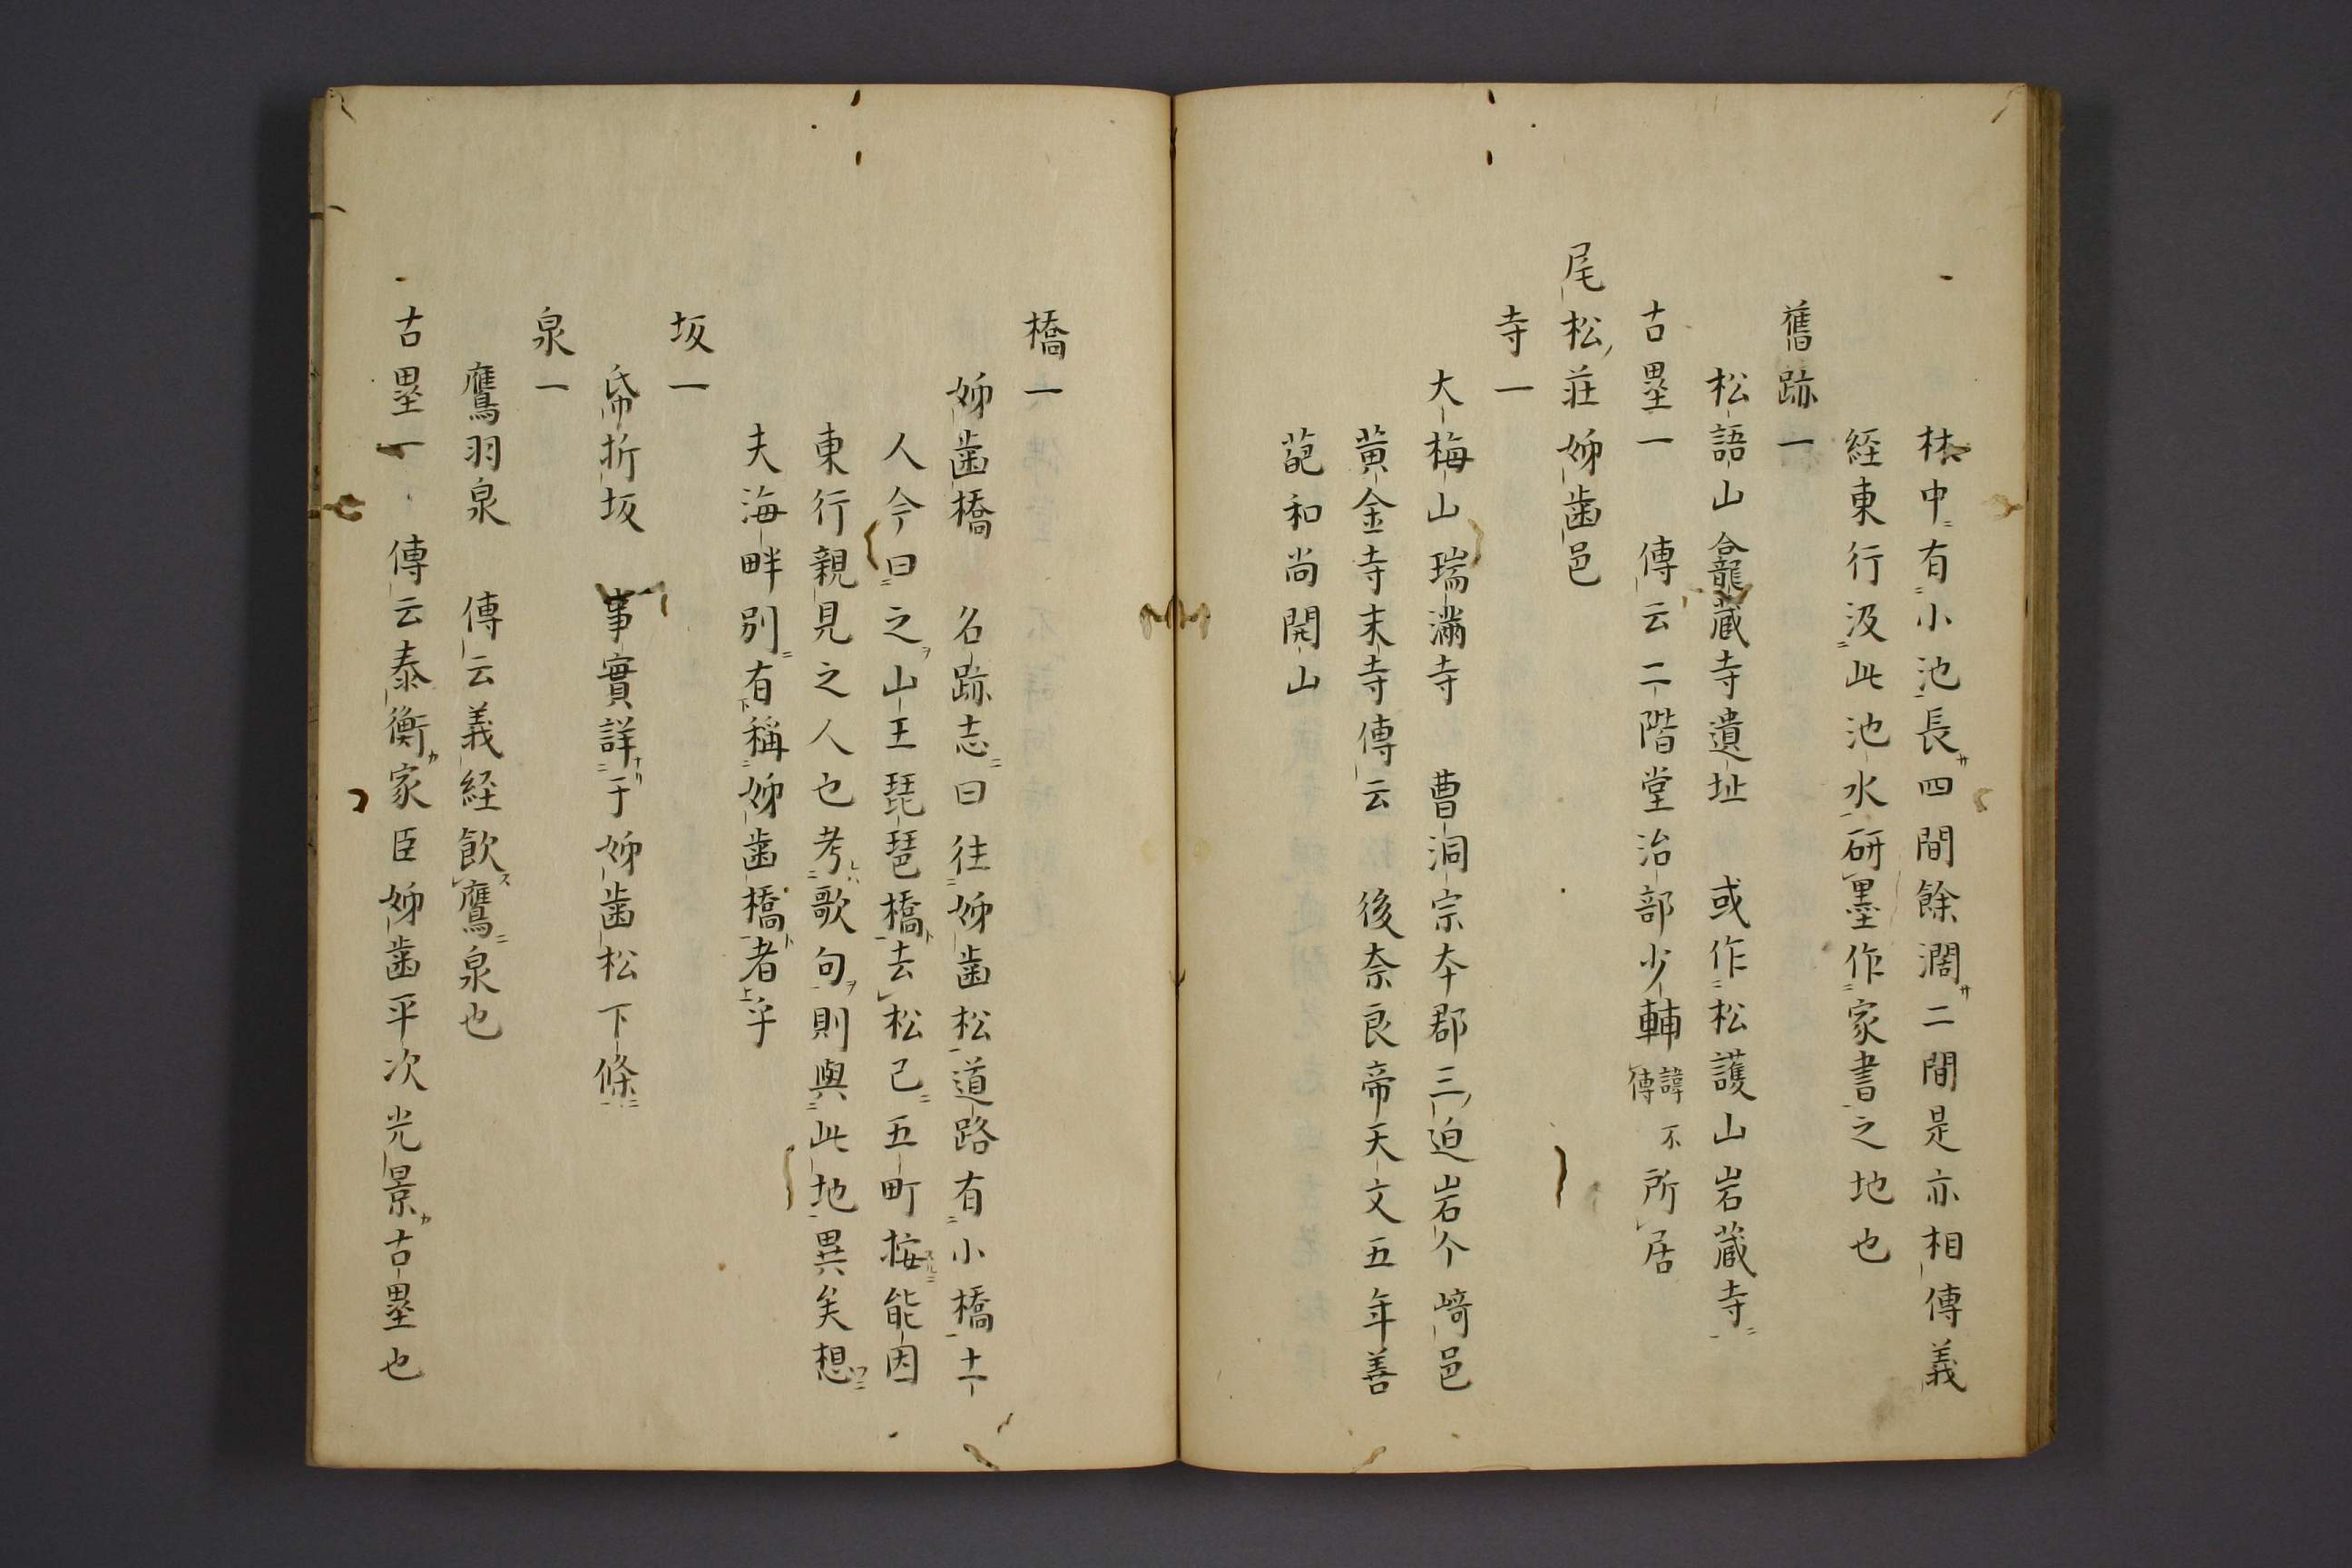 林中有小池長四間餘濶二間是亦相傳義
経東行汲此池水研墨作家書之地也
舊跡一
松語山龕藏寺遺址 或作松護山岩藏寺
古塁一 傳云二階堂治部少輔諱不傳所居
尾松荘姉歯邑
寺一
大梅山瑞滿寺 曹洞宗本郡三迫岩个﨑邑
黄金寺末寺傳云 後奈良帝天文五年善
葩和尚開山
橋一
姉歯橋 名跡志曰往姉歯松道路有小橋土
人今曰之山王琵琶橋去松已五町按能因
東行親見之人也考歌句則與此地異矣想
夫海畔別有稱姉歯橋者乎
坂一
帋折坂 事實詳于姉歯松下條
泉一
鷹羽泉 傳云義経飲鷹泉也
古塁一 傳云泰衡家臣姉歯平次光景古塁也